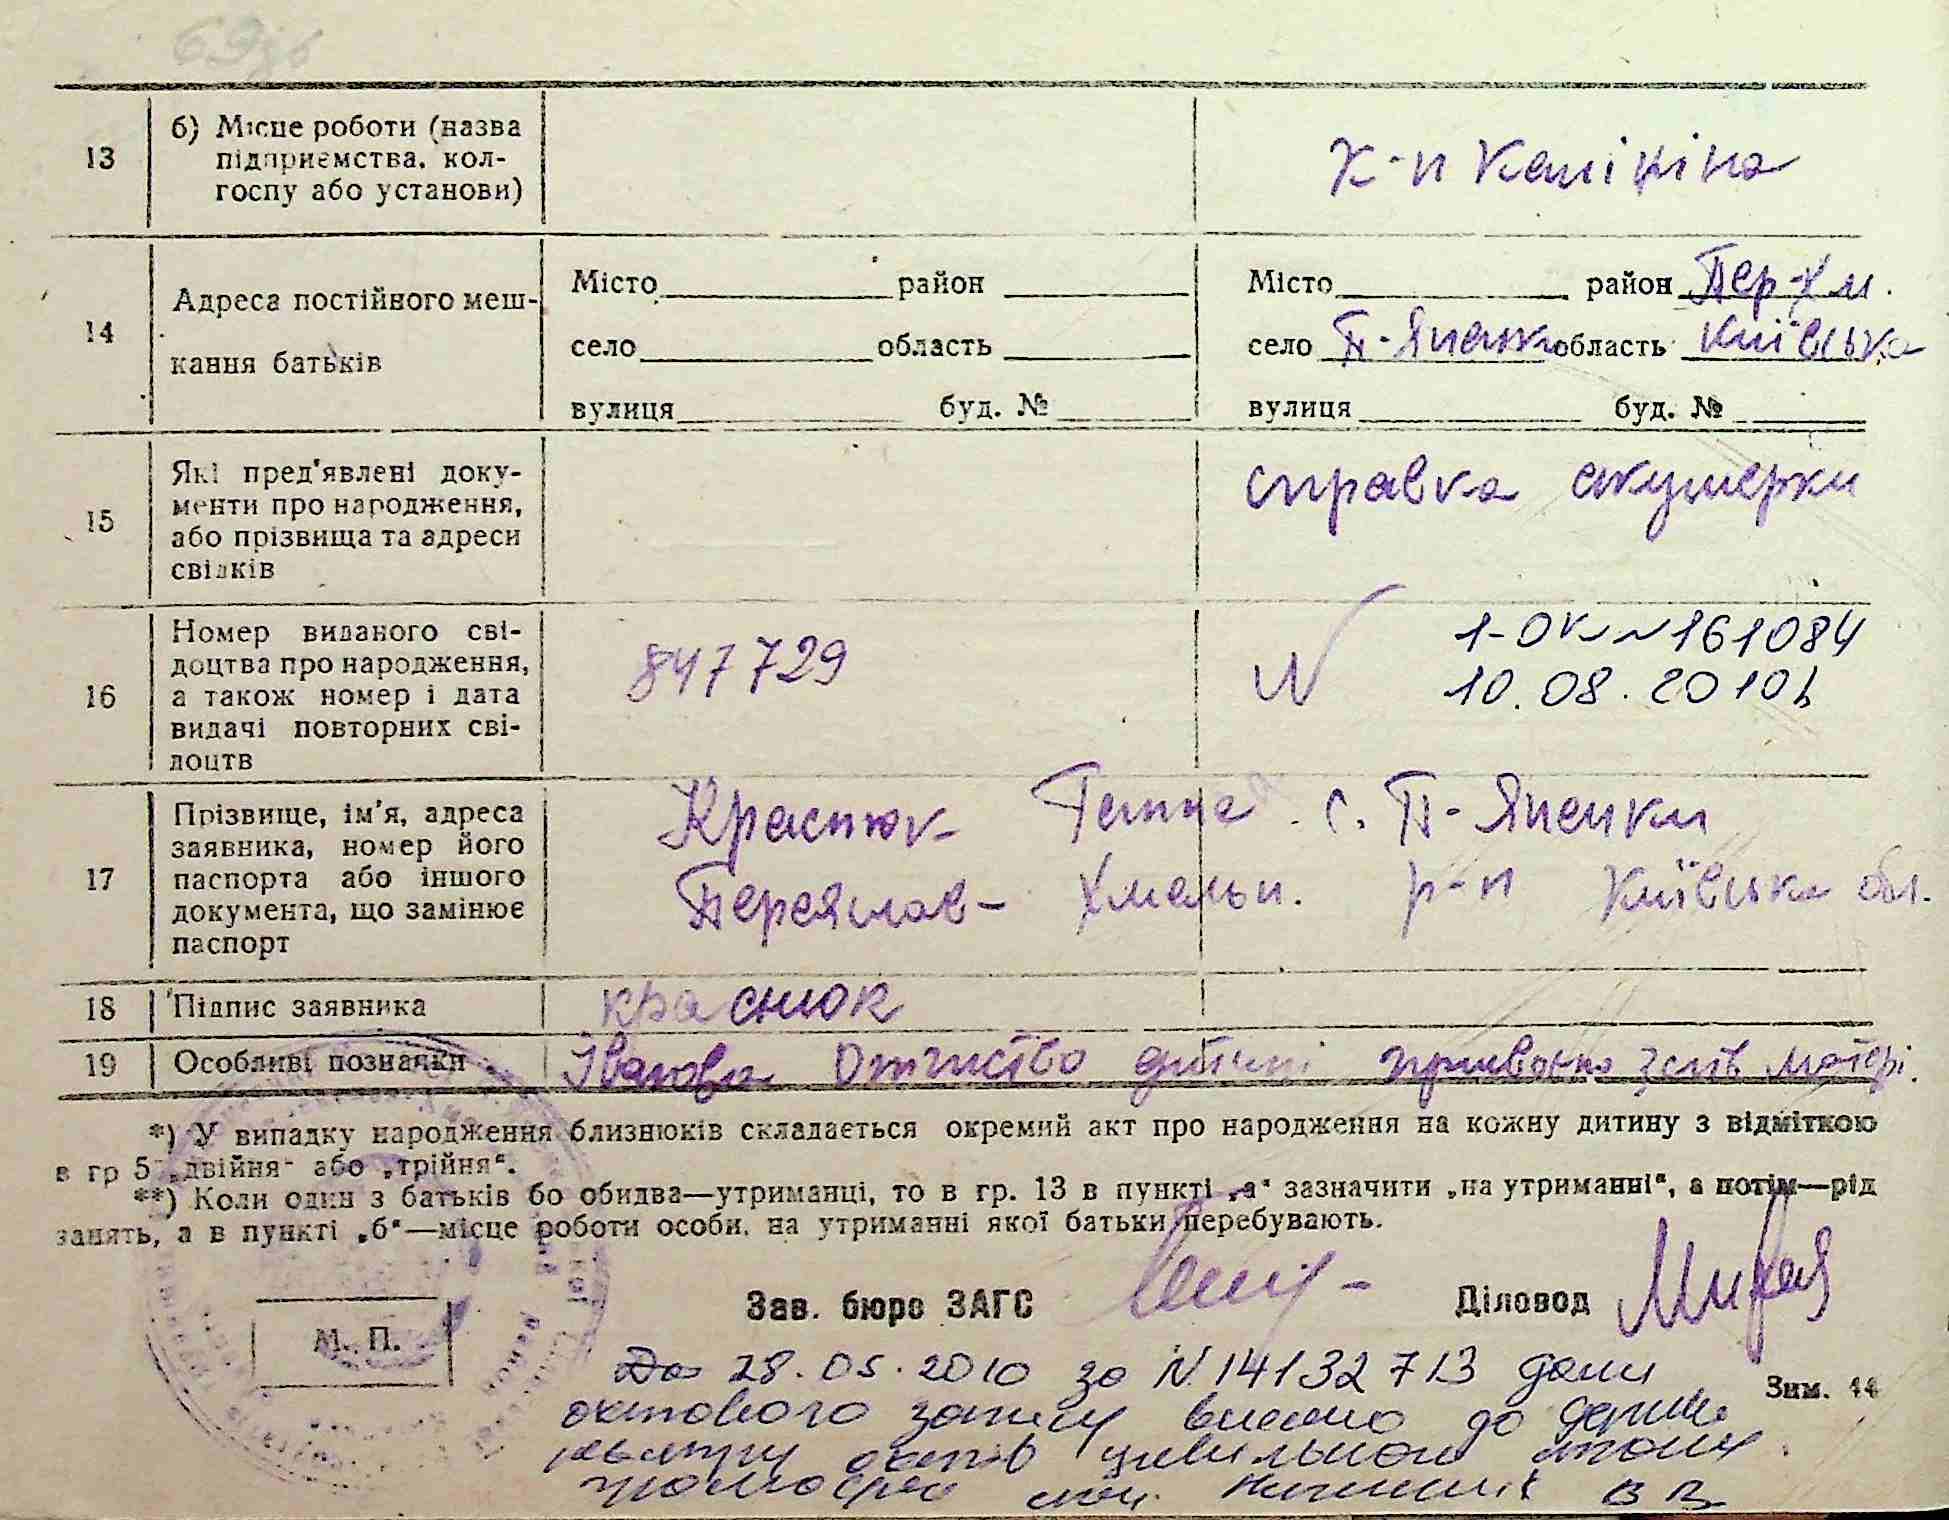 13
б) Місце роботи (назва
підприємства, кол-
госпу або установи)
к-п Калініна
14
Адреса постійного меш-
кання батьків
Місто район
село область
вулиця буд. №
Місто район Пер-Хм.
село П-Яненки область Київська
вулиця буд. №
15
Які пред'явлені доку-
менти про народження,
або прізвища та адреси
свідків
справка акушерки
16
Номер виданого сві-
доцтва про народження,
а також номер і дата
видачі повторних сві-
доцтв
847729
N
1-ОК №161084
10.08.2010
17
Прізвище, ім'я, адреса
заявника, номер його
паспорта або іншого
документа, що замінює
паспорт
Ганна с. П-Яненки
Переяслав-Хмельн. р-н Київська обл.
18
Підпис заявника
краснюк
19
Особливі позначки
отчиство дитині зі слів матері.
*) У випадку народження близнюків складається окремий акт про народження на кожну дитину з відміткою
в гр 5 „двійня" або „трійня".
**) Коли один з батьків бо обидва—утриманці, то в гр. 13 в пункті „а" зазначити „на утриманні", а потім—рід
занять, а в пункті „б"—місце роботи особи, на утриманні якої батьки перебувають.
Зав. бюро ЗАГС
Діловод
М. П.
28.05.2010 за N 14132713 дані
Зим. 44
актового запису внесено до держ
реєстру актів цивільного стану
В В